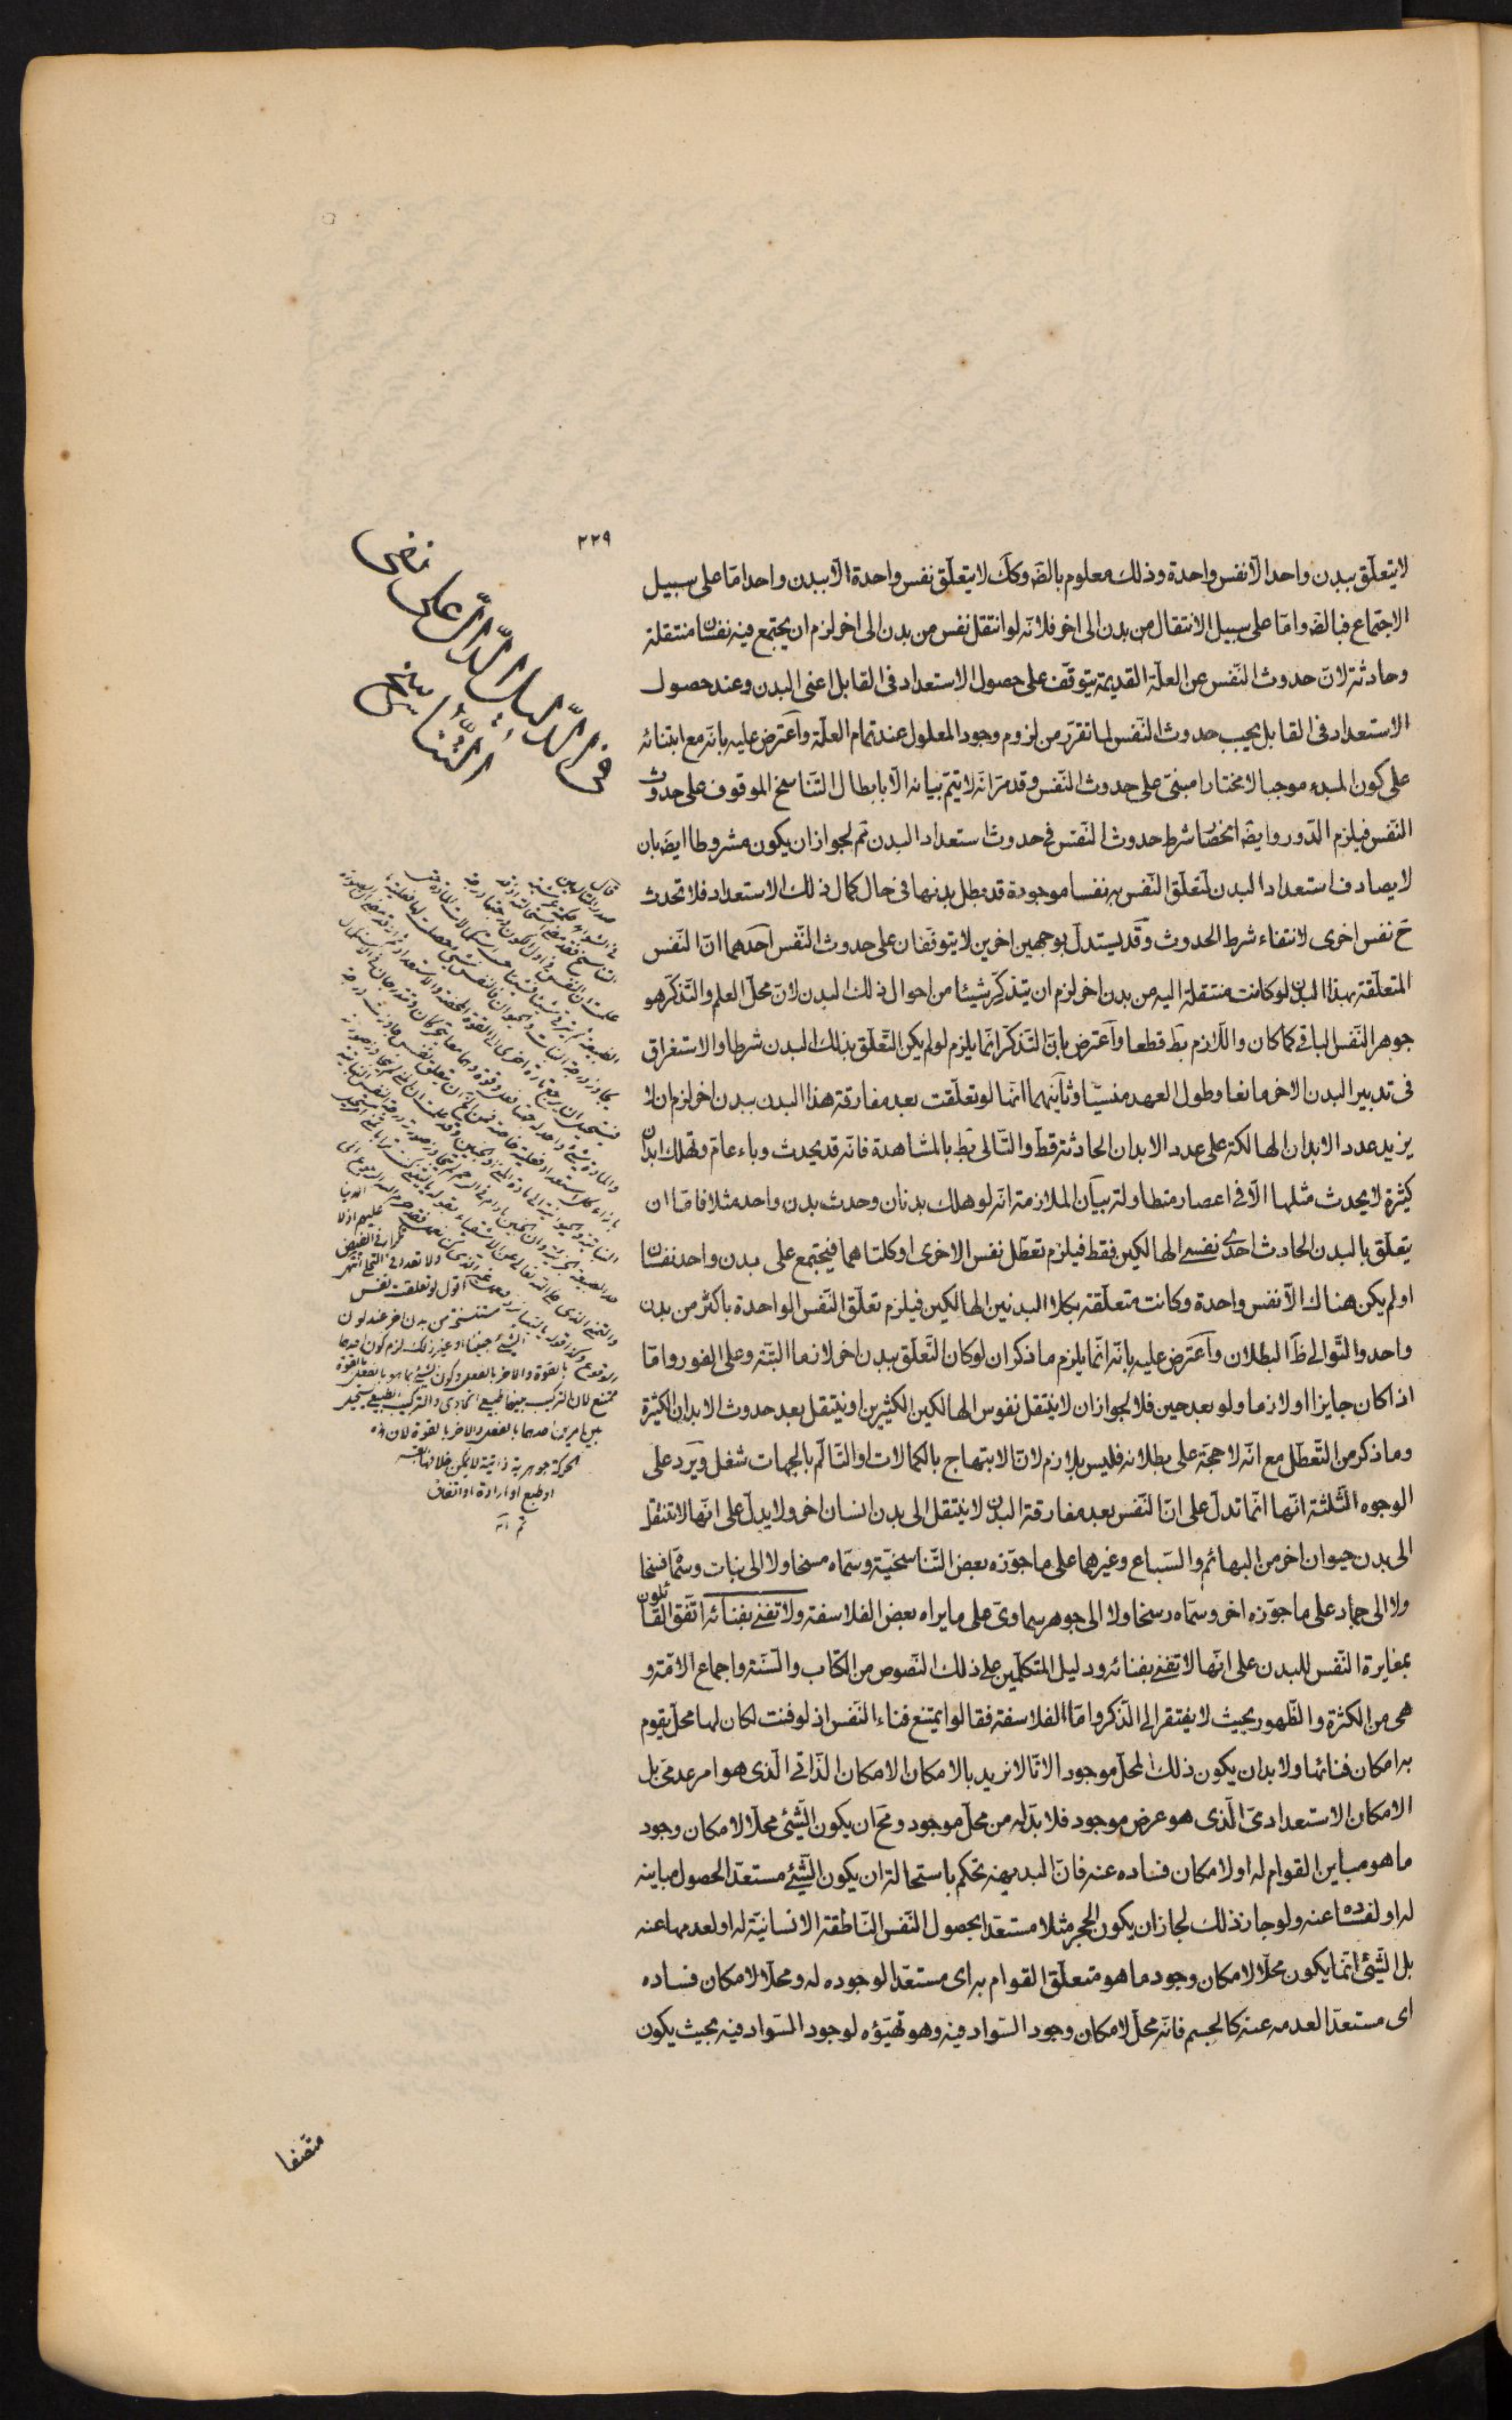 ٢٢٩
لا يتعلّق ببدن واحد الّا نفس واحدة وذلك معلوم بالضّه وكك لا يتعلّق نفس واحدة الّا ببدن واحد امّا على سبيل
الاجتماع فبالضّه وامّا على سبيل الانتقال من بدن الى اخر فلانّه لو انتقل نفس من بدن الى اخر لزم ان يجتمع فيه نفسان منتقلة
وحادثة لانّ حدوث النّفس عن العلّة القديمة يتوقّف على حصول الاستعداد فى القابل اعنى البدن وعند حصول
الاستعداد فى القابل يجب حدوث النّفس لما تقرّر من لزوم وجود المعلول عند تمام العلّة واعترض عليه بانّه مع ابتنائه
على كون المبدء موجبا لا مختارا مبنىّ على حدوث النّفس وقد مرّ انّه لا يتمّ بيانه الّا بابطال التّناسخ الموقوف على حدوث
النّفس فيلزم الدّور وايضّه انحصار شرط حدوث النّفس فى حدوث استعداد البدن تم لجواز ان يكون مشروطا ايضّه بان
لا يصادف استعداد البدن لتعلّق النّفس به نفسا موجودة قد بطل بدنها فى حال كمال ذلك الاستعداد فلا تحدث
حّ نفس اخرى لانتفاء شرط الحدوث وقد يستدلّ بوجهين اخرين لا يتوقّفان على حدوث النّفس احدهما انّ النّفس
المتعلّقة بهذا البدن لو كانت منتقلة اليه من بدن اخر لزم ان يتذكّر شيئا من احوال ذلك البدن لانّ محلّ العلم والتّذكّر هو
جوهر النّفس الباقى كما كان واللّازم بطّ قطعا واعترض بانّ التّذكّر انّما يلزم لو لم يكن التّعلّق بذلك البدن شرطا والاستغراق
فى تدبير البدن الاخر مانعا وطول العهد منسيّا وثانيهما انّها لو تعلّقت بعد مفارقة هذا البدن ببدن اخر لزم ان لا
يزيد عدد الابدان الهالكة على عدد الابدان الحادثة قطّ والتّالى بطّ بالمشاهدة فانّه قد يحدث وباء عامّ وتهلك ابدان
كثيرة لا يحدث مثلها الّا فى اعصار متطاولة بيان الملازمة انّه لو هلك بدنان وحدث بدن واحد مثلا فامّا ان
يتعلّق بالبدن الحادث احدى نفسى الهالكين فقط فيلزم تعطّل نفس الاخرى او كلتاهما فيجتمع على بدن واحد نفسان
او لم يكن هناك الّا نفس واحدة وكانت متعلّقة بكلا البدنين الهالكين فيلزم تعلّق النّفس الواحدة باكثر من بدن
واحد والتّوالى ظّ البطلان واعترض عليه بانّه انّما يلزم ما ذكر ان لو كان التّعلّق ببدن اخر لازما البتّة وعلى الفور وامّا
اذا كان جايزا او لازما ولو بعد حين فلا لجواز ان لا ينتقل نفوس الهالكين الكثيرين او ينتقل بعد حدوث الابدان الكثيرة
وما ذكر من التّعطّل مع انّه لا حجّة على بطلانه فليس بلازم لانّ الابتهاج بالكمالات او التّالّم بالجهات شغل ويرد على
الوجوه الثّلثة انّها انّما تدلّ على انّ النّفس بعد مفارقة البدن لا ينتقل الى بدن انسان اخر ولا يدلّ على انّها لا تنتقل
الى بدن حيوان اخر من البهائم والسّباع وغيرهما على ما جوّزه بعض التّناسخيّة وسمّاه مسخا ولا الى نبات وسمّاه فسخا
ولا الى جماد على ما جوّزه اخر وسمّاه رسخا ولا الى جوهر سماوىّ على ما يراه بعض الفلاسفة ولا تفنى بفنائه اتّفق القائلون
بمغايرة النّفس للبدن على انّها لا تفنى بفنائه ودليل المتكلّمين على ذلك النّصوص من الكتاب والسّنة واجماع الامّة و
هى من الكثرة والظّهور بحيث لا يفتقر الى الذّكر وامّا الفلاسفة فقالوا يمتنع فناء النّفس اذ لو فنت لكان لها محلّ يقوم
به امكان فنائها ولا بد ان يكون ذلك المحلّ موجودا لانّا لا نريد بالامكان الامكان الذّاتى الّذى هو امر عدمى بل
الامكان الاستعدادىّ الّذى هو عرض موجود فلا بدّ له من محلّ موجود ومحّ ان يكون الشّئ محلّا لامكان وجود
ما هو مباين القوام له او لامكان فساده عنه فانّ البديهة تحكم باستحالة ان يكون الشّئ مستعدّا لحصول مباينه
له او لفساده عنه ولو جاز ذلك لجاز ان يكون الحجر مثلا مستعدّا لحصول النّفس النّاطقة الانسانيّة له او لعدمها عنه
بل الشّئ انّما يكون محلّا لامكان وجود ما هو متعلّق القوام به اى مستعدّا لوجوده له ومحلّا لامكان فساده
اى مستعدّا لعدمه عنه كالجسم فانّه محلّ لامكان وجود السّواد فيه وهو تهيّؤه لوجود السّواد فيه بحيث يكون
متّصفا
فى الدّليل الدّالّ على نفى
التّناسخ
اقول لو تعلّقت نفس
مستنسخة من بدن اخر عند كون
بالقوة والاخر بالفعل وكون الشئ بما هو بالفعل بالقوة
ممتنع لان التركيب بينهما طبيعى اتحادى والتركيب الطبيعى يستحيل
بين امرين احدهما بالفعل والاخر بالقوة لان هذه
الحركة جوهرية ذاتية لا يمكن خلافها
او طبع او ارادة او اتفاق